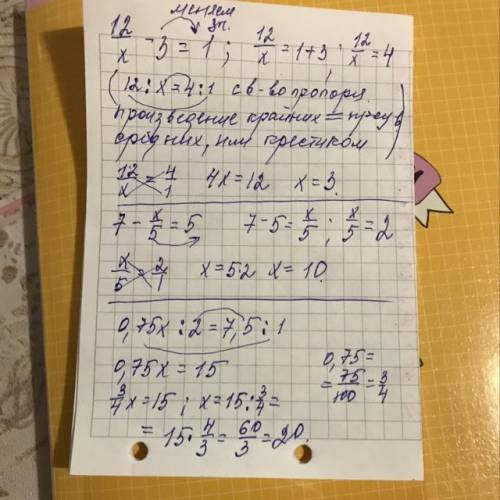 меняем
зн.
12/x - 3 = 1 ; 12/x = 1+3 ; 12/x = 4
(12 : x = 4 : 1 св-во пропорц.
произведение крайних = произв
средних, или крестиком)
12/x = 4/1 4x = 12 x = 3.
7 - x/5 = 5 7 - 5 = x/5 ; x/5 = 2
x/5 = 2/1 x = 5·2 x = 10.
0,75x : 2 = 7,5 : 1
0,75x = 15 0,75 =
= 75/100 = 3/4
3/4 x = 15 ; x = 15 : 3/4 =
= 15 · 4/3 = 60/3 = 20.